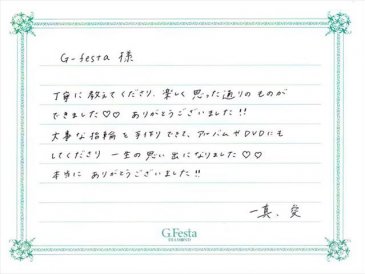 G-festa 様
丁寧に教えてくださり、楽しく思った通りのものが
できました♡♡ ありがとうございました!!
大事な指輪を手作りできて、アルバムやDVDにも
してくださり 一生の思い出になりました♡♡
本当に ありがとうございました!!
一真、愛
G.Festa
DIAMOND